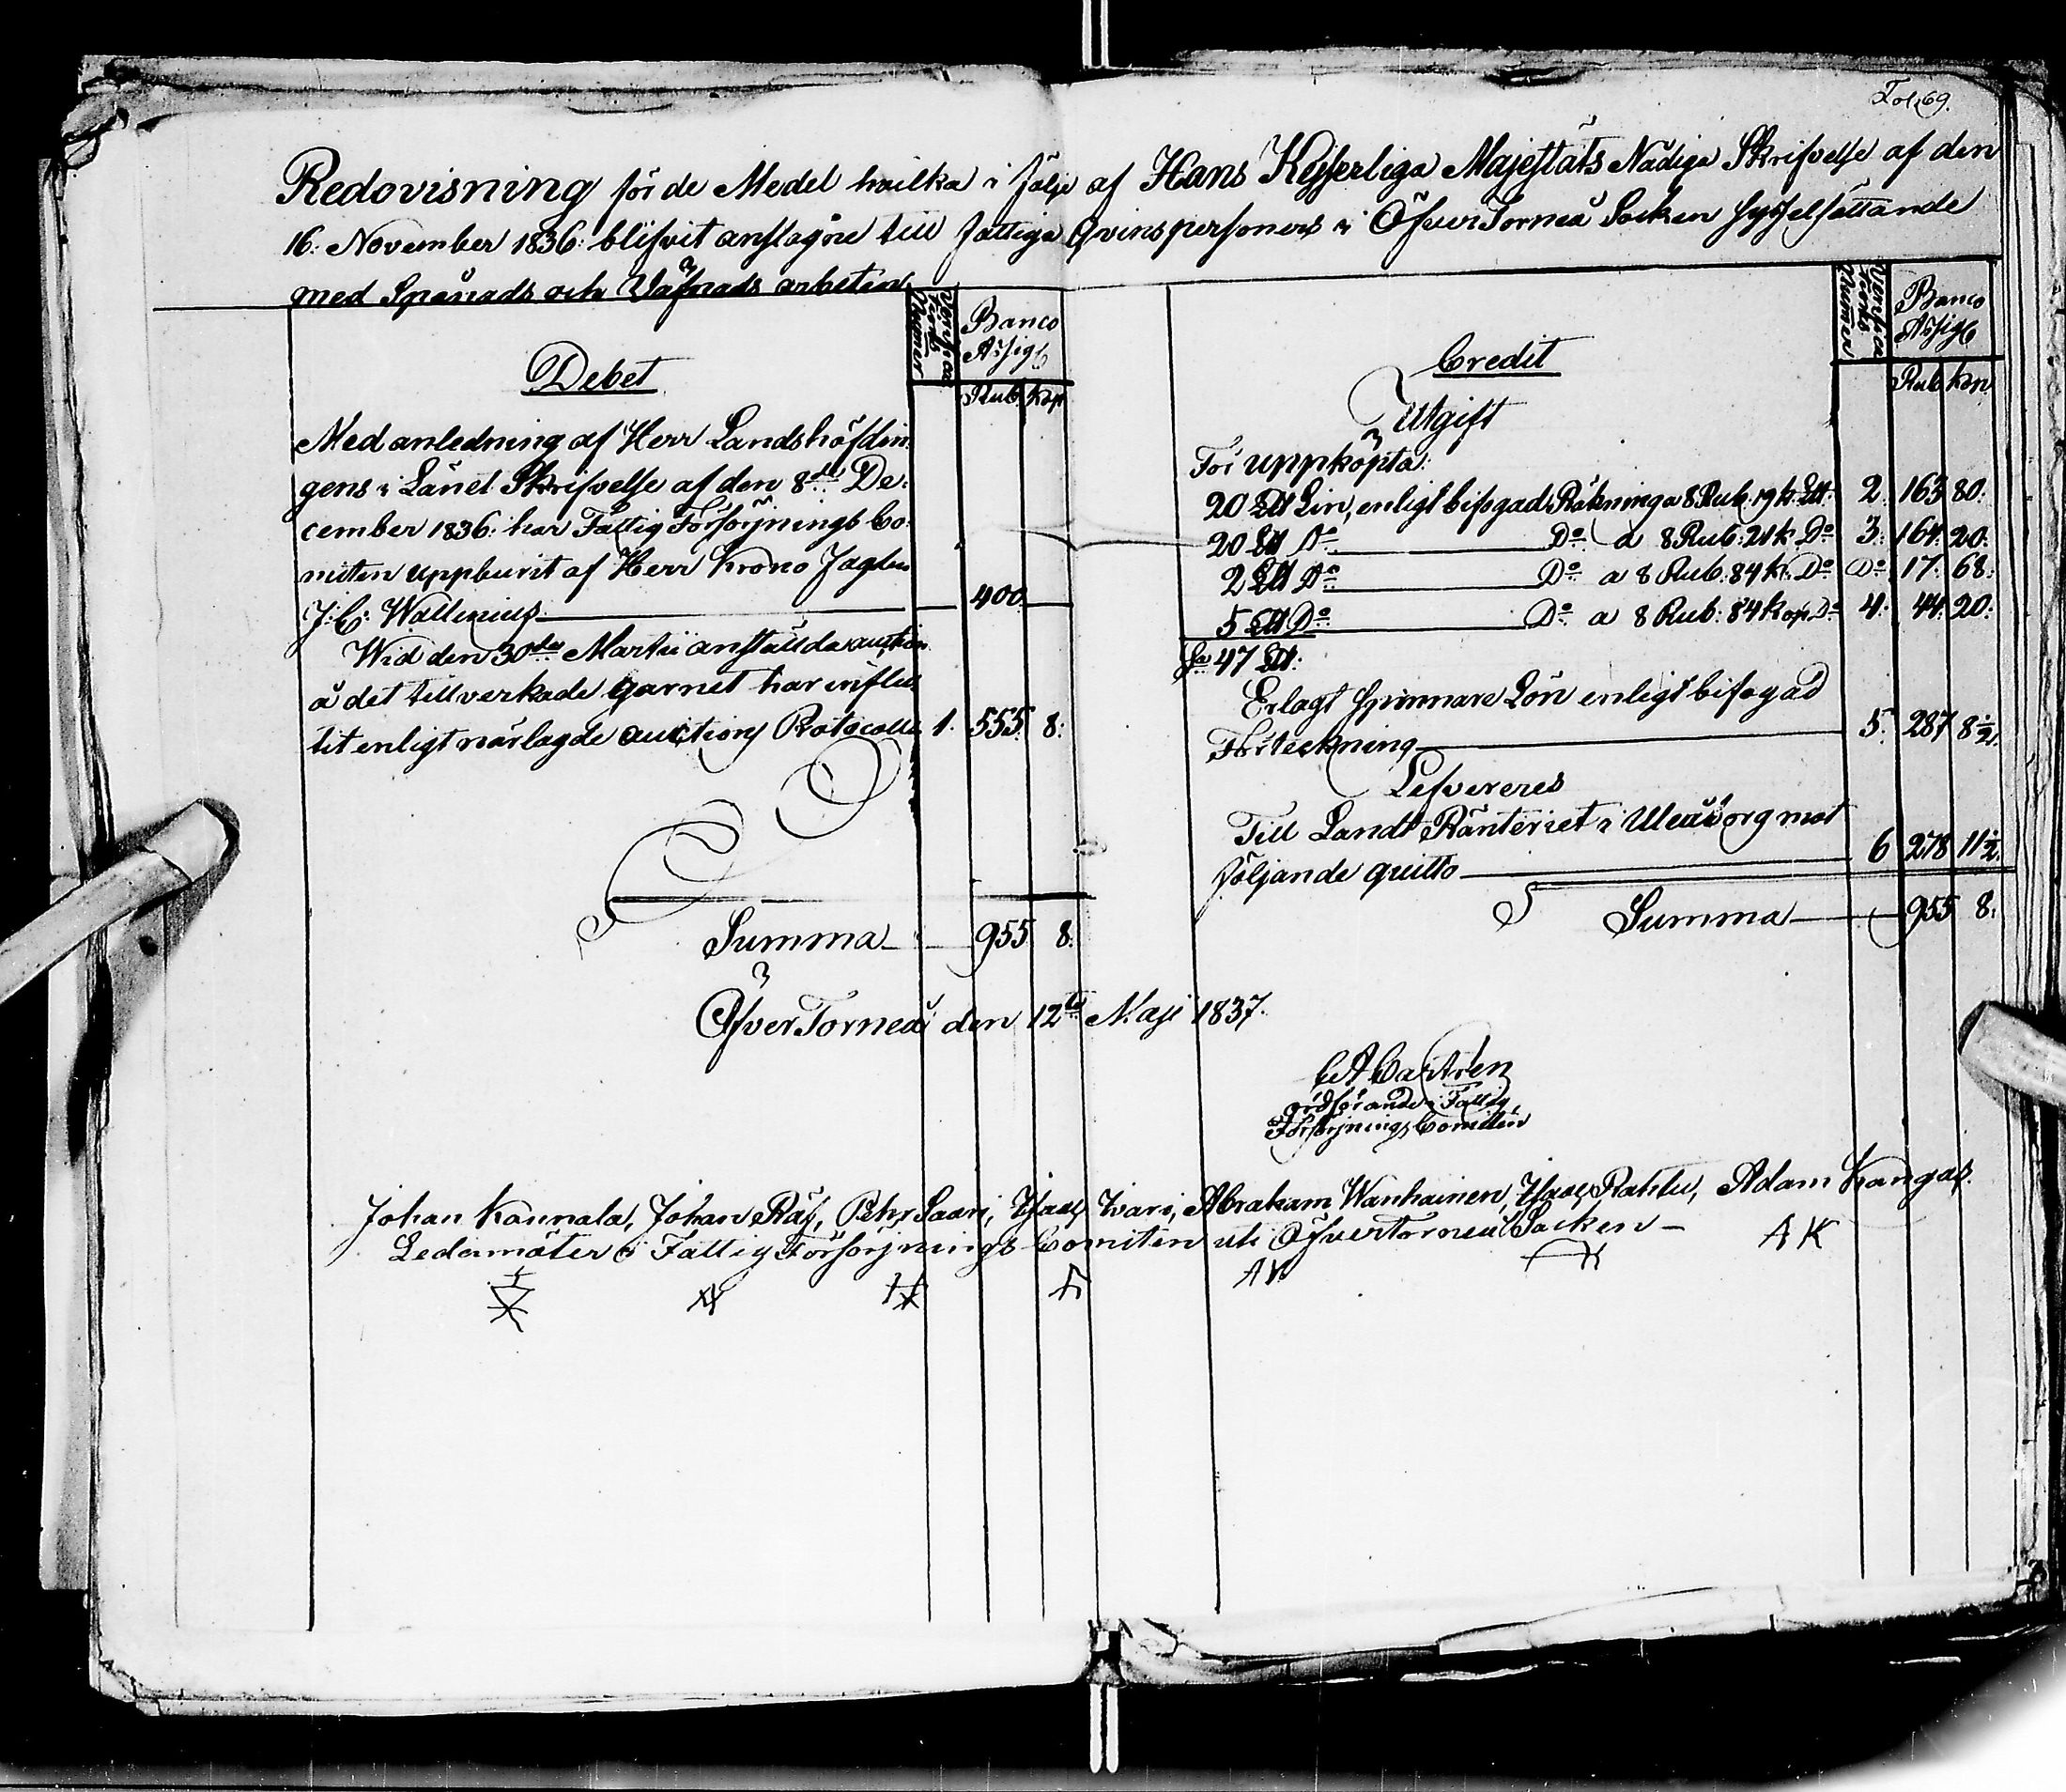 Fol. 69.
Redovisning för de Medel hvilka i följe af Hans Kejserliga Majestäts Nådiga Skrifvelse af den
16. November 1836: blifvit anslagne till fattiga Qvinspersoners i ÖfverTorneå Socken sysselsättande
med Spånads och Väfnads arbeten.
Debet
Verifica
tions
Numer
Banco
Assign
Rub. Kop
Med anledning af Herr Landshöfdin
gens i Länet Skrifvelse af den 8de De-
cember 1836: har Fattig Försörjnings Co-
miten uppburit af Herr Krono Fogden
J: C: Wallenius 400.
Wid den 30de Martii anstälda auction
å det tillverkade garnet har influ-
tit enligt närlagde auctions Protocoll 1. 555. 8:
Summa 955 8.
Credit
Verifica
tions
Numer
Banco
Assign
Rub Kop
Utgift
För uppköpta:
20 L℔ Lin, enligt bifogad Räkning a 8 Rub. 19 k L℔: 2. 163 80:
20 L℔ Do Do a 8 Rub: 21 k Do 3: 164: 20:
2 L℔ Do Do a 8 Rub: 84 k: Do Do 17: 68:
5 L℔ Do Do a 8 Rub: 84 kop Do 4: 44: 20:
Sa 47 L℔:
Erlagt Spinnare Lön enligt bifogad
Förteckning 5. 287 8 1/2.
Lefvereres
Till Landt Ränteriet i Uleåborg mot
följande quitto 6 278 11 1/2.
Summa 955 8.
ÖfverTorneå den 12te Maji 1837.
C A Castrén
ordförande i Fattig
Försörjnings Comitén
Johan Kannala, Johan Räf, Pehr Saari, Isaac Kari, Abraham Wanhainen, Isaac Rahtu, Adam Kangas.
Ledamöter i Fattig Försörjnings Comiten uti ÖfverTorneå Socken
A K